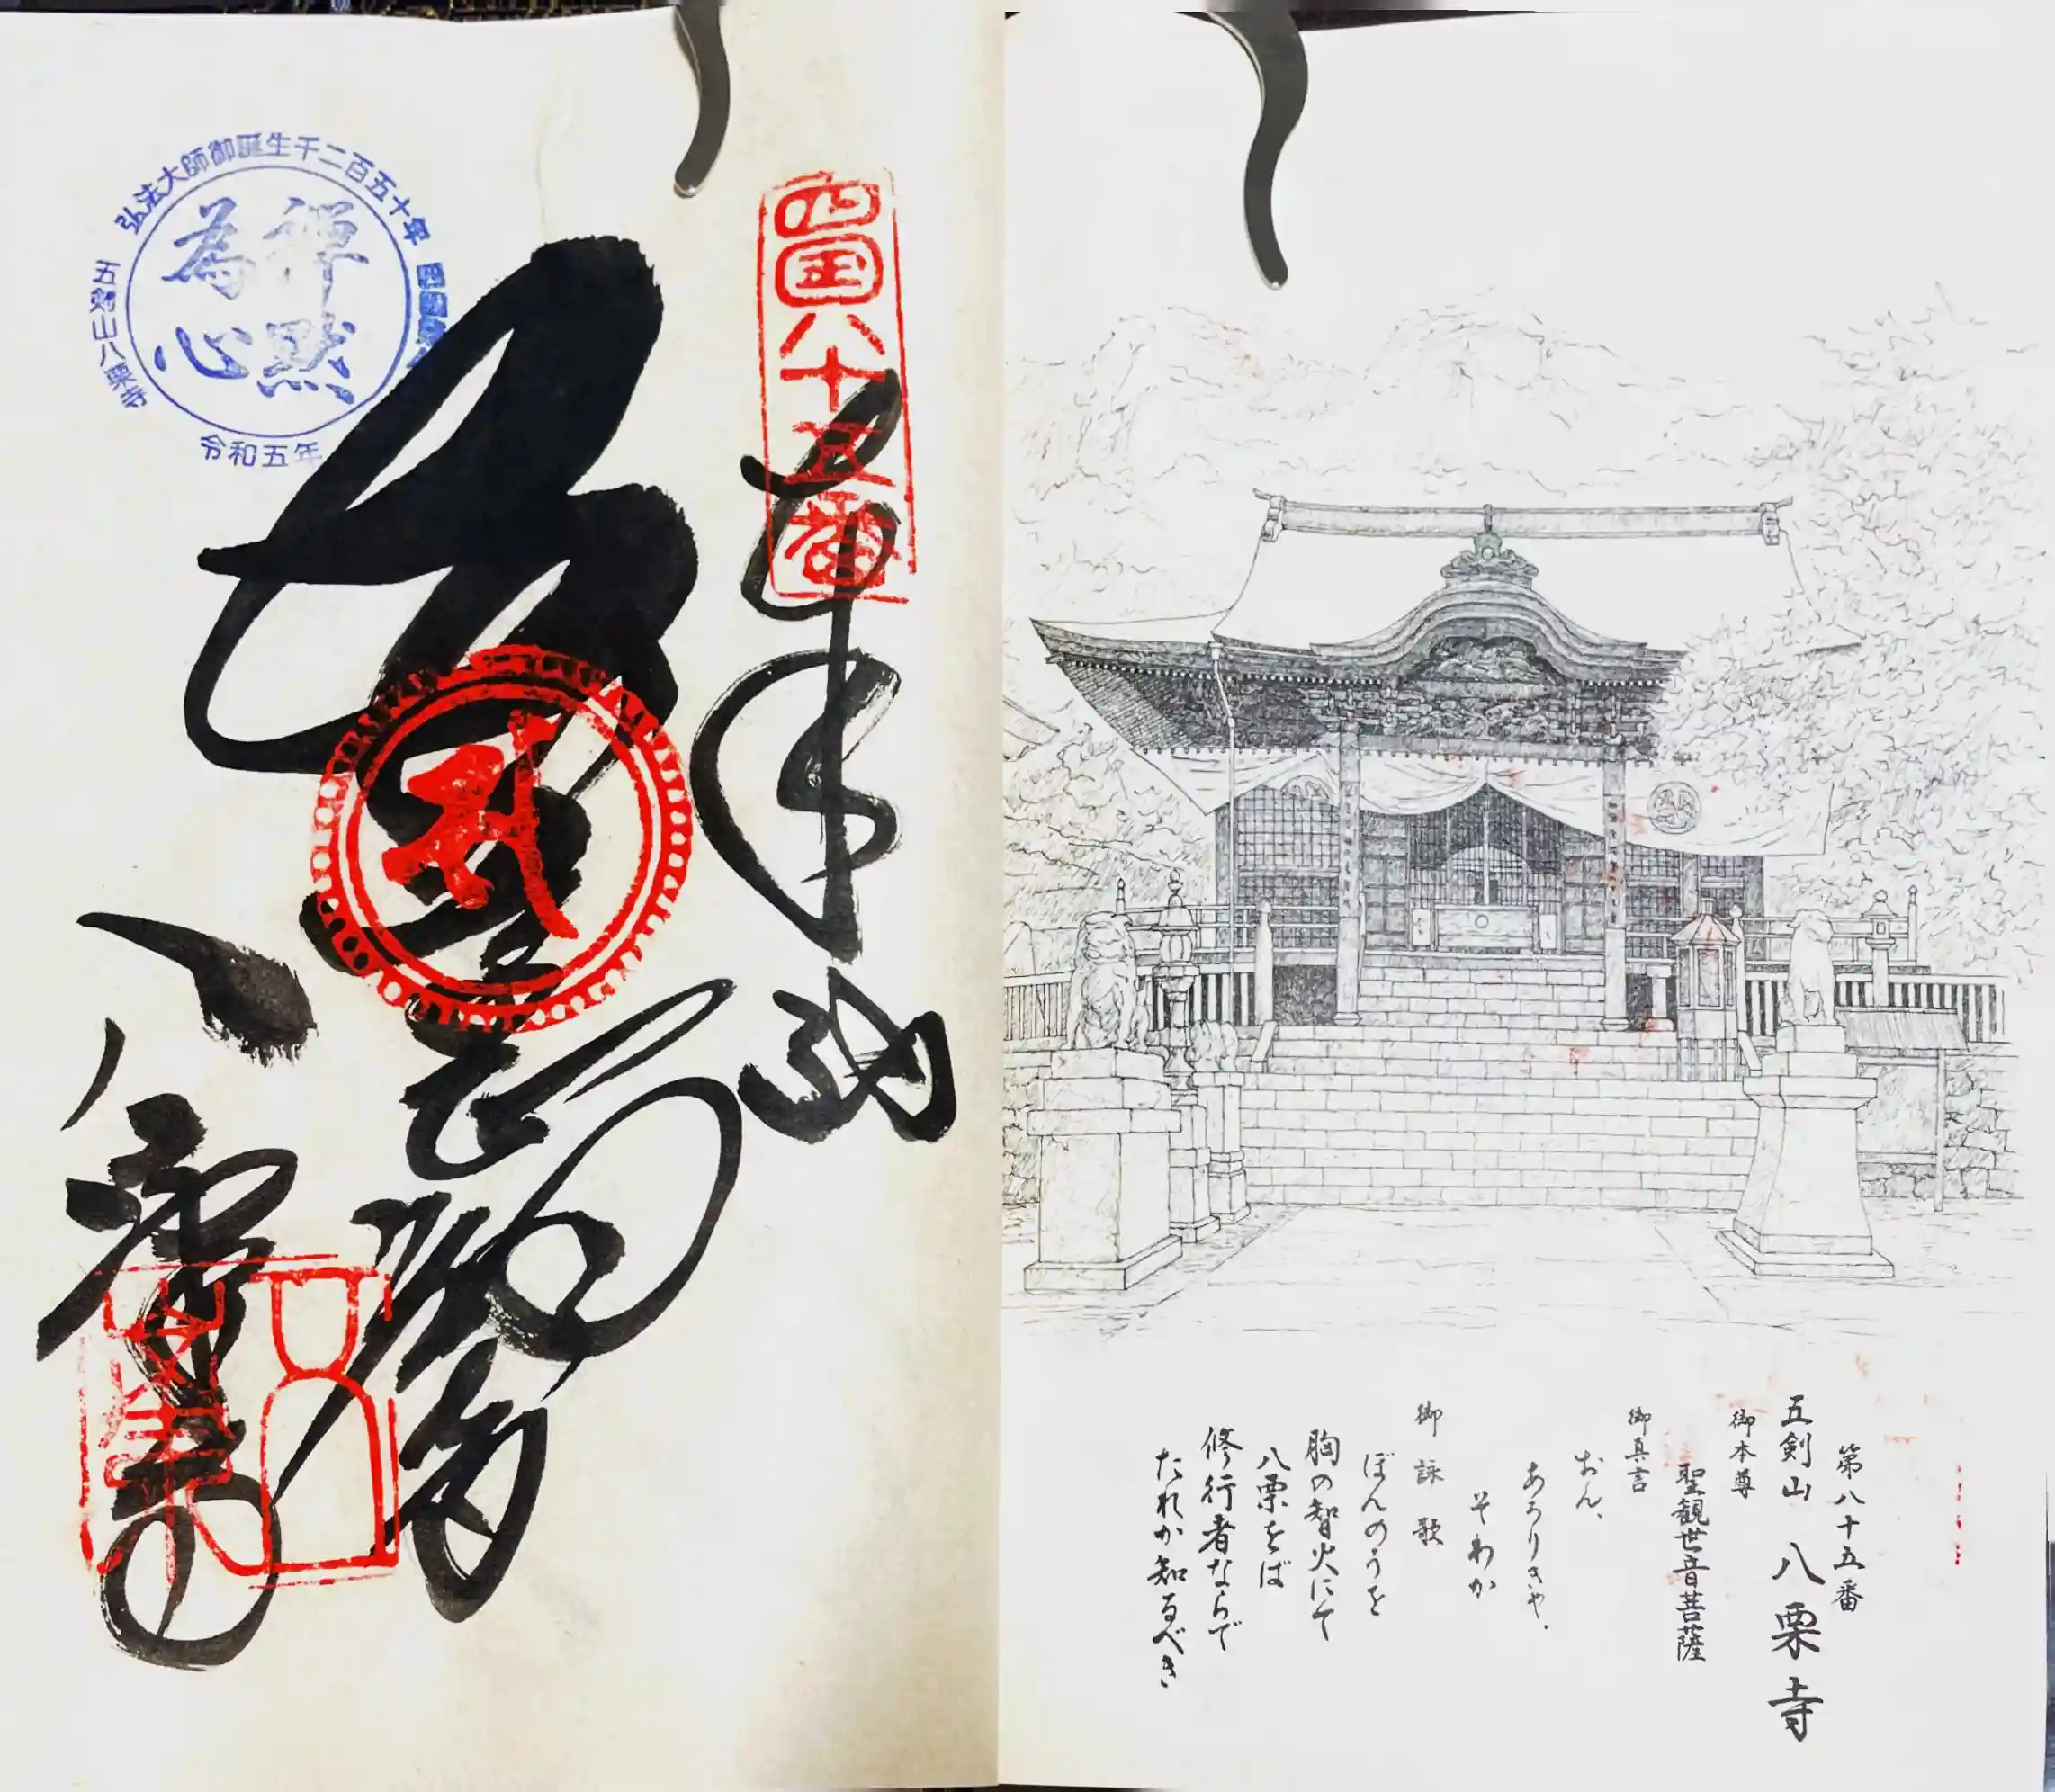 第八十五番
五剣山 八栗寺
御本尊
聖観世音菩薩
御真言
おん、
あろりきや、
そわか
御詠歌
ぼんのうを
胸の智火にて
八栗をば
修行者ならで
たれか知るべき
四國八十五番
奉納
八栗寺
弘法大師御誕生千二百五十年
禅黙
為心
五剣山八栗寺
令和五年